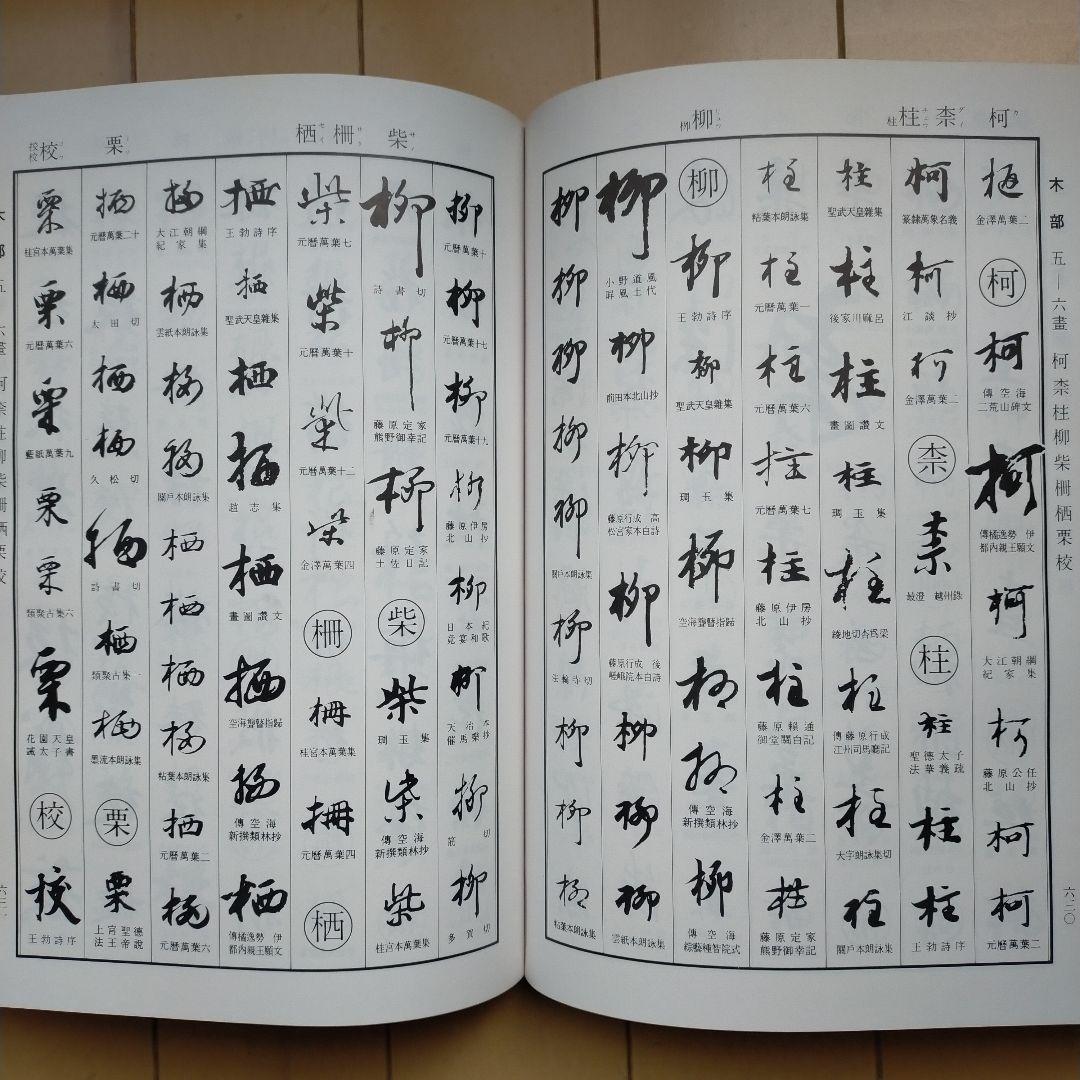 柯 柰 柱 柳
木部 五—六畫 柯柰柱柳柴柵栖栗校
六二〇
金澤萬葉二
柯
柯
傳空海
二荒山碑文
柯
傳橘逸勢 伊
都内親王願文
柯
大江朝綱
紀家集
柯
藤原公任
北山抄
柯
柯
元曆萬葉二
柯
篆隷萬象名義
柯
江談抄
柯
金澤萬葉二
柰
柰
最澄 越州錄
柱
柱
聖德太子
法華義疏
柱
柱
王勃詩序
柱
聖武天皇雜集
柱
後家川麻呂
柱
畫圖讚文
柱
琱玉集
柱
綾地切杏爲梁
柱
傳藤原行成
江州司馬廳記
柱
大字朗詠集切
柱
關戸本朗詠集
柱
粘葉本朗詠集
柱
元曆萬葉一
柱
元曆萬葉六
柱
元曆萬葉七
柱
藤原伊房
北山抄
柱
藤原賴通
御堂關白記
柱
金澤萬葉二
柱
藤原定家
熊野御幸記
柳
柳
王勃詩序
柳
聖武天皇雜集
柳
琱玉集
柳
空海聾瞽指歸
柳
柳
傳空海
新撰類林抄
柳
傳空海
綜藝種智院式
柳
小野道風
屏風土代
柳
前田本北山抄
柳
藤原行成 高
松宮家本白詩
柳
藤原行成 後
嵯峨院本白詩
柳
柳
柳
雲紙本朗詠集
柳
柳
柳
柳
柳
關戸本朗詠集
柳
法輪寺切
柳
柳
柳
粘葉本朗詠集
柴 柵 栖 栗 校
柳
元曆萬葉十
柳
元曆萬葉十七
柳
元曆萬葉十九
柳
藤原伊房
北山抄
柳
日本紀
竟宴和歌
柳
天治本
催馬樂抄
柳
筋切
柳
多賀切
柳
詩書切
柳
藤原定家
熊野御幸記
柳
藤原定家
土佐日記
柴
柴
琱玉集
柴
傳空海
新撰類林抄
柴
桂宮本萬葉集
柴
元曆萬葉七
柴
元曆萬葉十
柴
元曆萬葉十二
柴
金澤萬葉四
柵
柵
桂宮本萬葉集
柵
元曆萬葉四
栖
栖
王勃詩序
栖
聖武天皇雜集
栖
栖
趙志集
栖
畫圖讚文
栖
空海聾瞽指歸
栖
傳空海
新撰類林抄
栖
傳橘逸勢 伊
都内親王願文
栖
大江朝綱
紀家集
栖
雲紙本朗詠集
栖
栖
關戸本朗詠集
栖
栖
栖
栖
粘葉本朗詠集
栖
元曆萬葉二
栖
元曆萬葉六
栖
元曆萬葉二十
栖
太田切
栖
栖
久松切
栖
詩書切
栖
類聚古集一
栖
墨流本朗詠集
栗
栗
上宮聖德
法王帝說
栗
桂宮本萬葉集
栗
元曆萬葉六
栗
藍紙萬葉九
栗
栗
類聚古集六
栗
花園天皇
誡太子書
校
校
王勃詩序